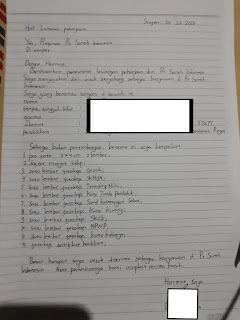 Sragen, 20 Jul 2020
Hal : Lamaran pekerjaan
Yth. Pimpinan Pt Samsh Indonesia
Di tempat
Dengan Hormat,
Berdasarkan penawaran lowongan pekerjaan dari Pt Samsh Indonesia
Saya mengajukan diri untuk bergabung sebagai karyawan di Pt Samsh
Indonesia.
Saya yang bernama tangan di bawah ini
nama
tempat, tanggal lahir
agama
alamat 57277
pendidikan Negeri
Sebagai bahan pertimbangan, bersama ini saya lampirkan :
1. pas photo 3x4 cm 2 lembar.
2. daftar riwayat hidup.
3. Satu lembar fotocopy ijazah.
4. Satu lembar fotocopy SKHUN.
5. Satu lembar fotocopy
6. Satu lembar fotocopy Kartu Tanda Penduduk.
7. Satu lembar fotocopy Surat keterangan Sehat.
8. Satu lembar fotocopy Kartu Kuning.
9. Satu lembar fotocopy SKCK.
10. Satu lembar fotocopy NPWP.
11. Satu lembar fotocopy Kartu keluarga.
12. fotocopy sertifikat keahlian.
Besar harapan saya untuk diterima sebagai karyawan di Pt Samsh
Indonesia. Atas perhatiannya kami ucapkan terima kasih.
Hormat Saya